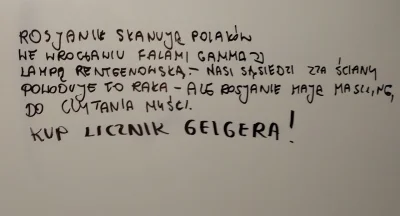 ROSJANIE SKANUJĄ POLAKÓW
WE WROCŁAWIU FALAMI GAMMA ZJ
LAMPĄ RENTGENOWSKĄ - NASI SĄSIEDZI ZZA ŚCIANY
POWODUJE TO RAKA - ALE ROSJANIE MAJĄ MASZYNĘ,
DO CZYTANIA MYŚLI.
KUP LICZNIK GEIGERA!